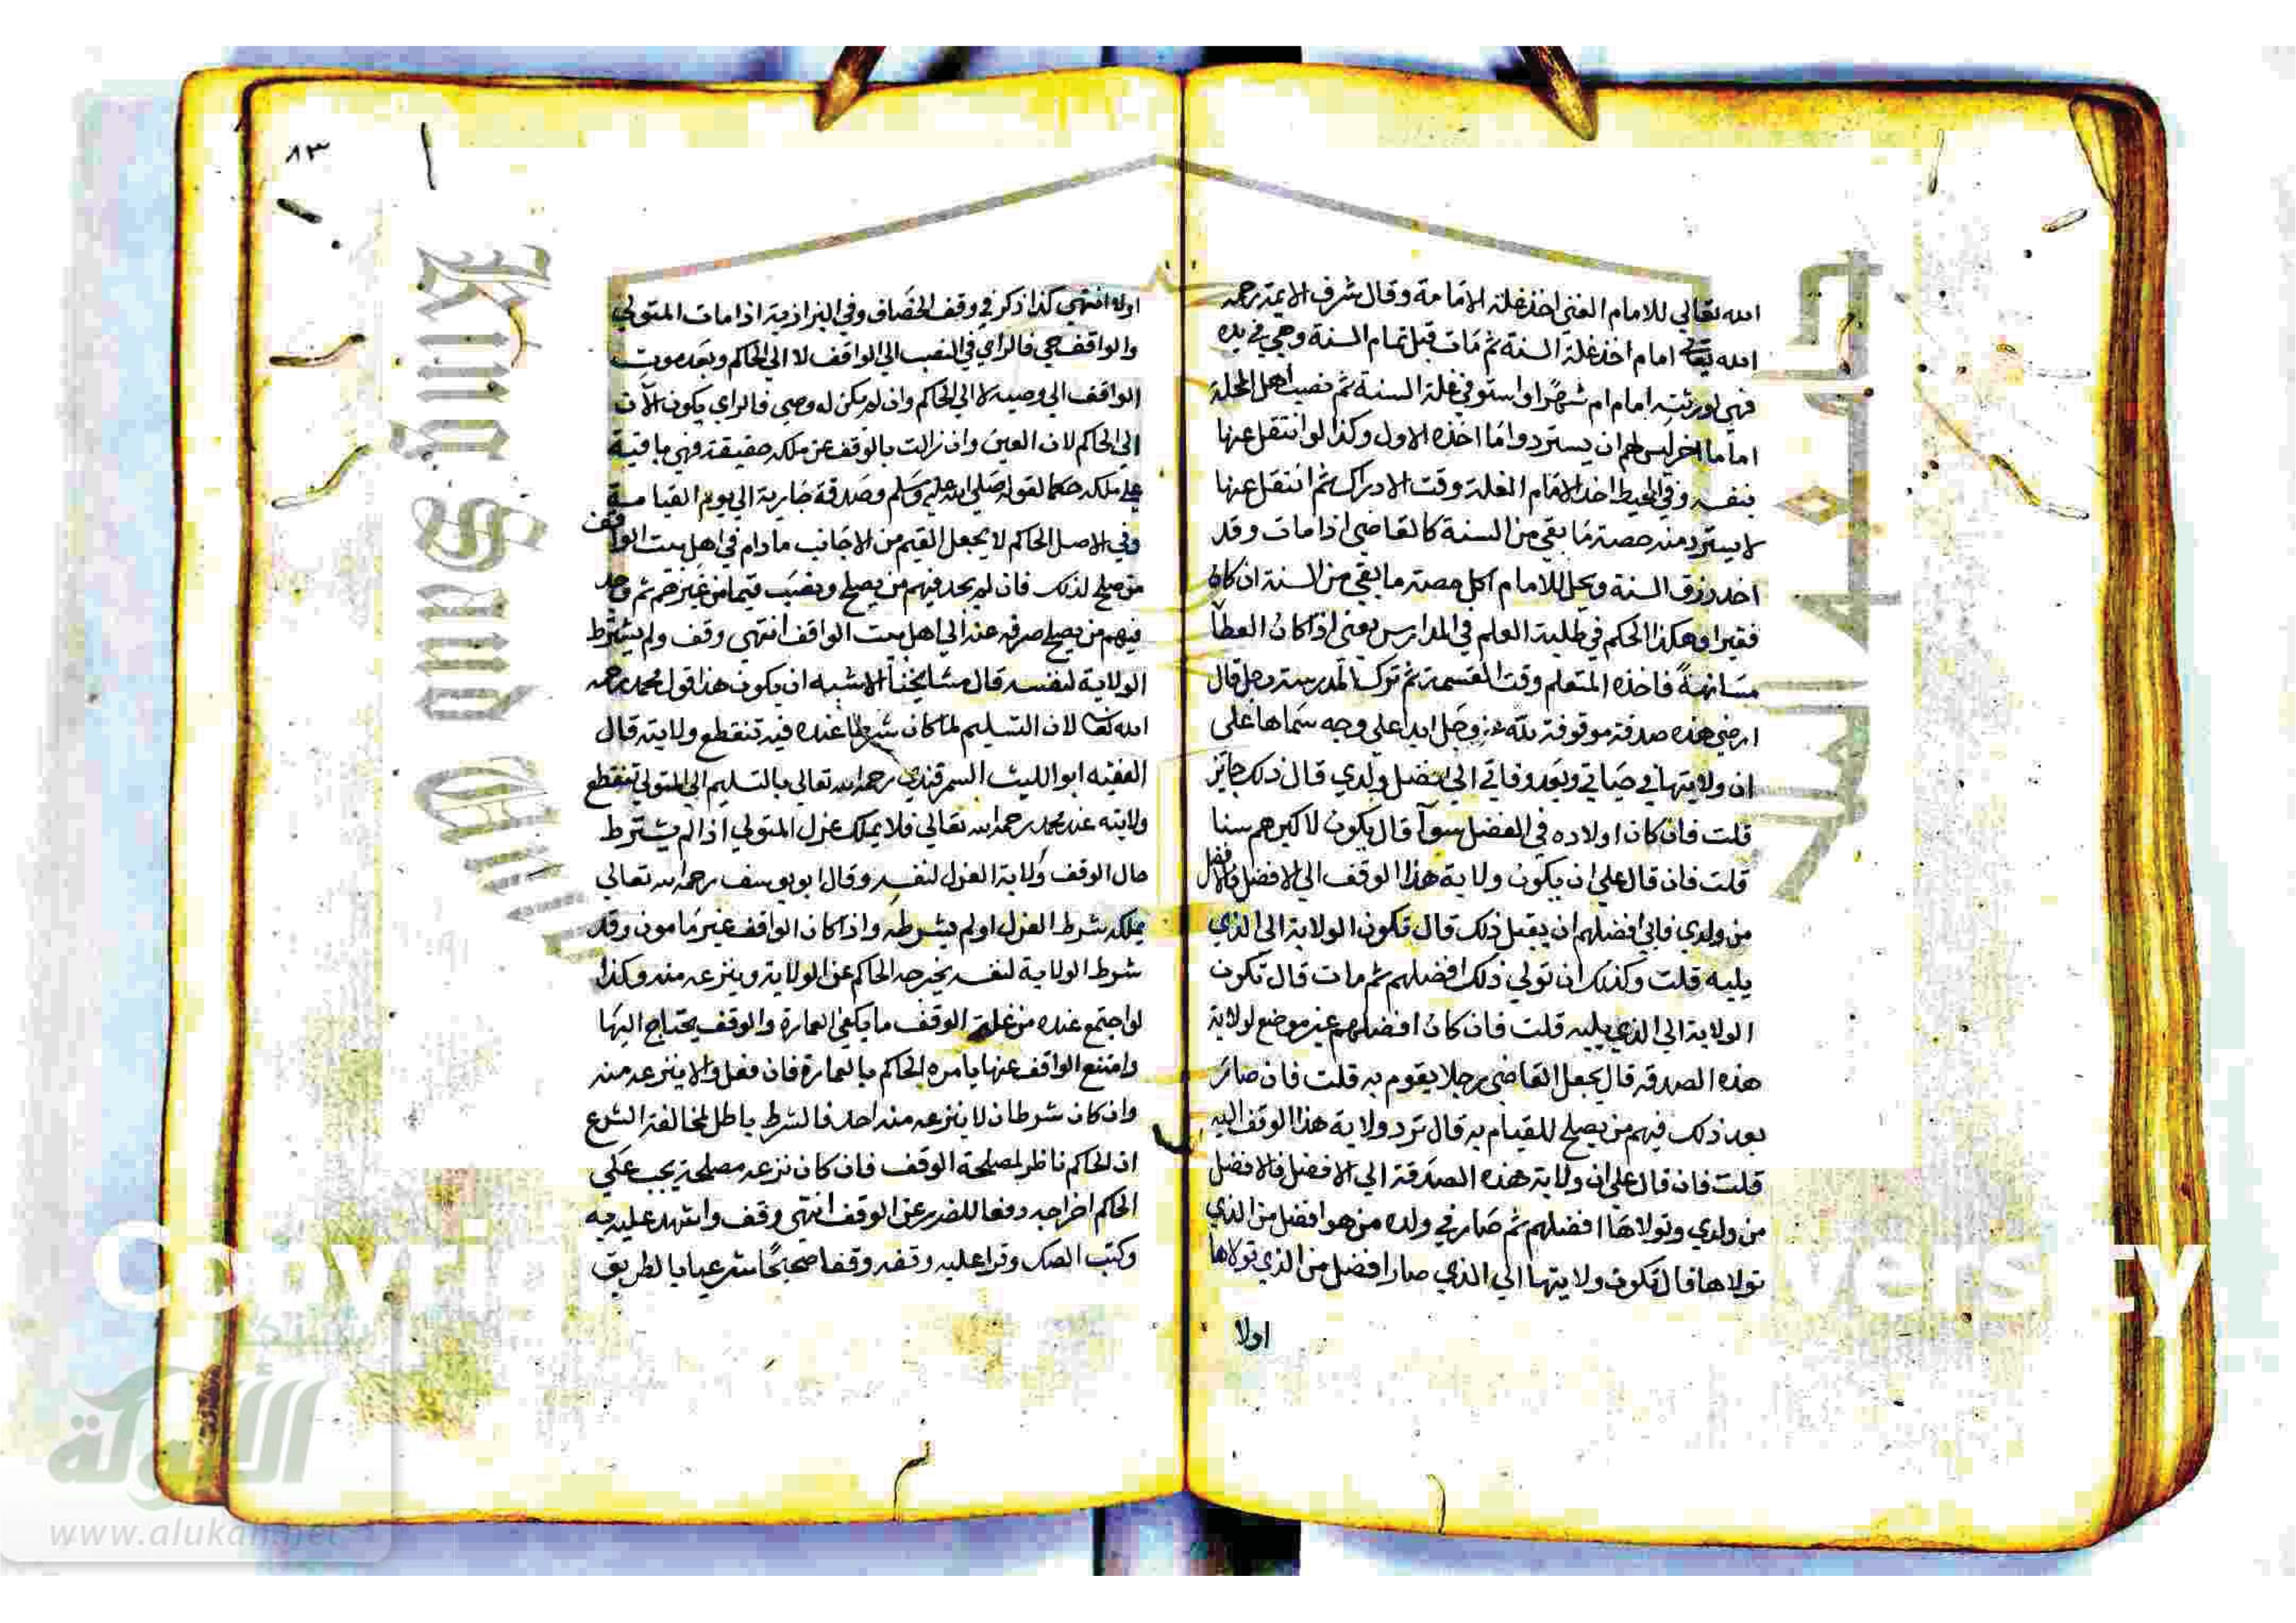 الله تعالي للامام الغني اخذ غلة الامامة وقال شرف الايمة رحمه
الله تعالي امام اخذ غلة السنة ثم مات قبل تمام السنة وهي في يده
فهي لورثته امام ام شهرا واستوفي غلة السنة ثم نصب اهل المحلة
اماما اخر ليس لهم ان يستردوا ما اخذه الاول وكذا لو انتقل عنها
بنفسه وفي المحيط اخذ الامام الغلة وقت الادراك ثم انتقل عنها
لا يسترد منه حصة ما بقي من السنة كالقاضي اذا مات وقد
اخذ رزق السنة ويحل للامام اكل حصة ما بقي من السنة ان كان
فقيرا وهكذا الحكم في طلبة العلم في المدارس يعني اذا كان العطا
مسانهة فاخذه المتعلم وقت القسمة ثم ترك المدرسة رجل قال
ارضي هذه صدقة موقوفة لله عز وجل ابدا علي وجه سماها علي
ان ولايتها في حياتي وبعد وفاتي الي افضل ولدي قال ذلك جائز
قلت فان كان اولاده في الفضل سوآ قال يكون لاكبرهم سنا
قلت فان قال علي ان يكون ولاية هذا الوقف الي الافضل فالافضل
من ولدي فابي افضلهم ان يقبل ذلك قال تكون الولاية الي الذي
يليه قلت وكذلك ان تولي ذلك افضلهم ثم مات قال تكون
الولاية الي الذي يليه قلت فان كان افضلهم غير موضع لولاية
هذه الصدقة قال يجعل القاضي رجلا يقوم به قلت فان صار
بعد ذلك فيهم من يصلح للقيام به قال ترد ولاية هذا الوقف اليه
قلت فان قال علي ان ولاية هذه الصدقة الي الافضل فالافضل
من ولدي وتولاها افضلهم ثم صار في ولده من هو افضل من الذي
تولاها قال تكون ولايتها الي الذي صار افضل من الذي تولاها
اولا
٨٣
اولا انتهي كذا ذكر في وقف الخصاف وفي البزازية اذا مات المتولي
والواقف حي فالراي في النصب الي الواقف لا الي الحاكم وبعد موت
الواقف الي وصيه لا الي الحاكم وان لم يكن له وصي فالراي يكون الآن
الي الحاكم لان العين وان زالت بالوقف عن ملكه حقيقة فهي باقية
علي ملكه حكما لقوله صلي الله عليه وسلم وصدقة جارية الي يوم القيامة
وفي الاصل الحاكم لا يجعل القيم من الاجانب ما دام في اهل بيت الواقف
من يصلح لذلك فان لم يجد فيهم من يصلح ونصب قيما من غيرهم ثم وجد
فيهم من يصلح صرفه عنه الي اهل بيت الواقف انتهي وقف ولم يشترط
الولاية لنفسه قال مشايخنا الاشبه ان يكون هذا قول محمد رحمه
الله تعا لان التسليم لما كان شرطا عنده فبه تنقطع ولايته قال
الفقيه ابو الليث السمرقندي رحمه الله تعالي بالتسليم الي المتولي تنقطع
ولايته عند محمد رحمه الله تعالي فلا يملك عزل المتولي اذا لم يشترط
حال الوقف ولاية العزل لنفسه وقال ابو يوسف رحمه الله تعالي
يملكه شرط العزل او لم يشرطه واذا كان الواقف غير مامون وقد
شرط الولاية لنفسه يخرجه الحاكم عن الولاية وينزعه منه وكذا
لو اجتمع عنده من غلة الوقف ما يكفي العمارة والوقف يحتاج اليها
وامتنع الواقف عنها يامره الحاكم بالعمارة فان فعل والا ينزعه منه
وان كان شرط ان لا ينزعه منه احد فالشرط باطل لمخالفة الشرع
اذ الحاكم ناظر لمصلحة الوقف فان كان نزعه مصلحة يجب علي
الحاكم اخراجه دفعا للضرر عن الوقف انتهي وقف واشهد عليه فيه
وكتب الصك وقرا عليه وقفه وقفا صحيحا شرعيا بالطريق
جامعة الملك
King Saud
Copyrig
versity
شبكة
الألوكة
www.alukah.net